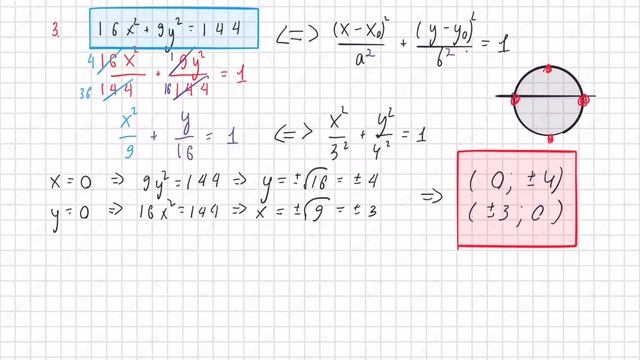 3. 16x² + 9y² = 144 <=> (x-x₀)²/a² + (y-y₀)²/b² = 1
4 16x²/144 + 1 9y²/144 = 1
36 16
x²/9 + y/16 = 1 <=> x²/3² + y²/4² = 1
x=0 => 9y²=144 => y=±√16 = ±4 => (0; ±4)
y=0 => 16x²=144 => x=±√9 = ±3 (±3; 0)